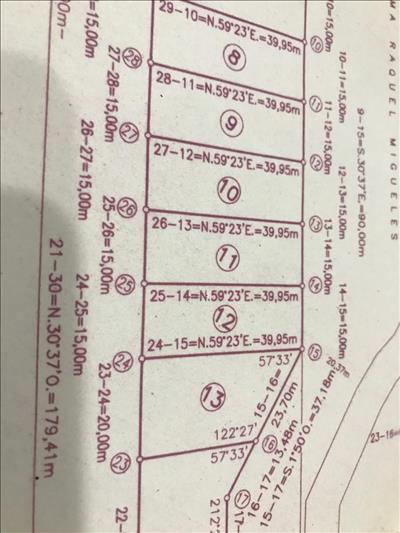 29-10=N.59°23'E.=39,95m
8
28-11=N.59°23'E.=39,95m
9
27-12=N.59°23'E.=39,95m
10
26-13=N.59°23'E.=39,95m
11
25-14=N.59°23'E.=39,95m
12
24-15=N.59°23'E.=39,95m
57°33'
13
122°27'
57°33'
28
27
26
25
24
23
10
11
12
13
14
15
16
17
=15,00m
27-28=15,00m
26-27=15,00m
25-26=15,00m
24-25=15,00m
23-24=20,00m
22-
00m-
21-30=N.30°37'O.=179,41m
10=15,00m
10-11=15,00m
11-12=15,00m
12-13=15,00m
13-14=15,00m
14-15=15,00m
9-15=S.30°37'E.=90,00m
MA RAQUEL MIGUELES
20.37m
15-16=
23,70m
16-17=13,48m
15-17=S.1°50'O.=37,18m
212°
17-
23-16=